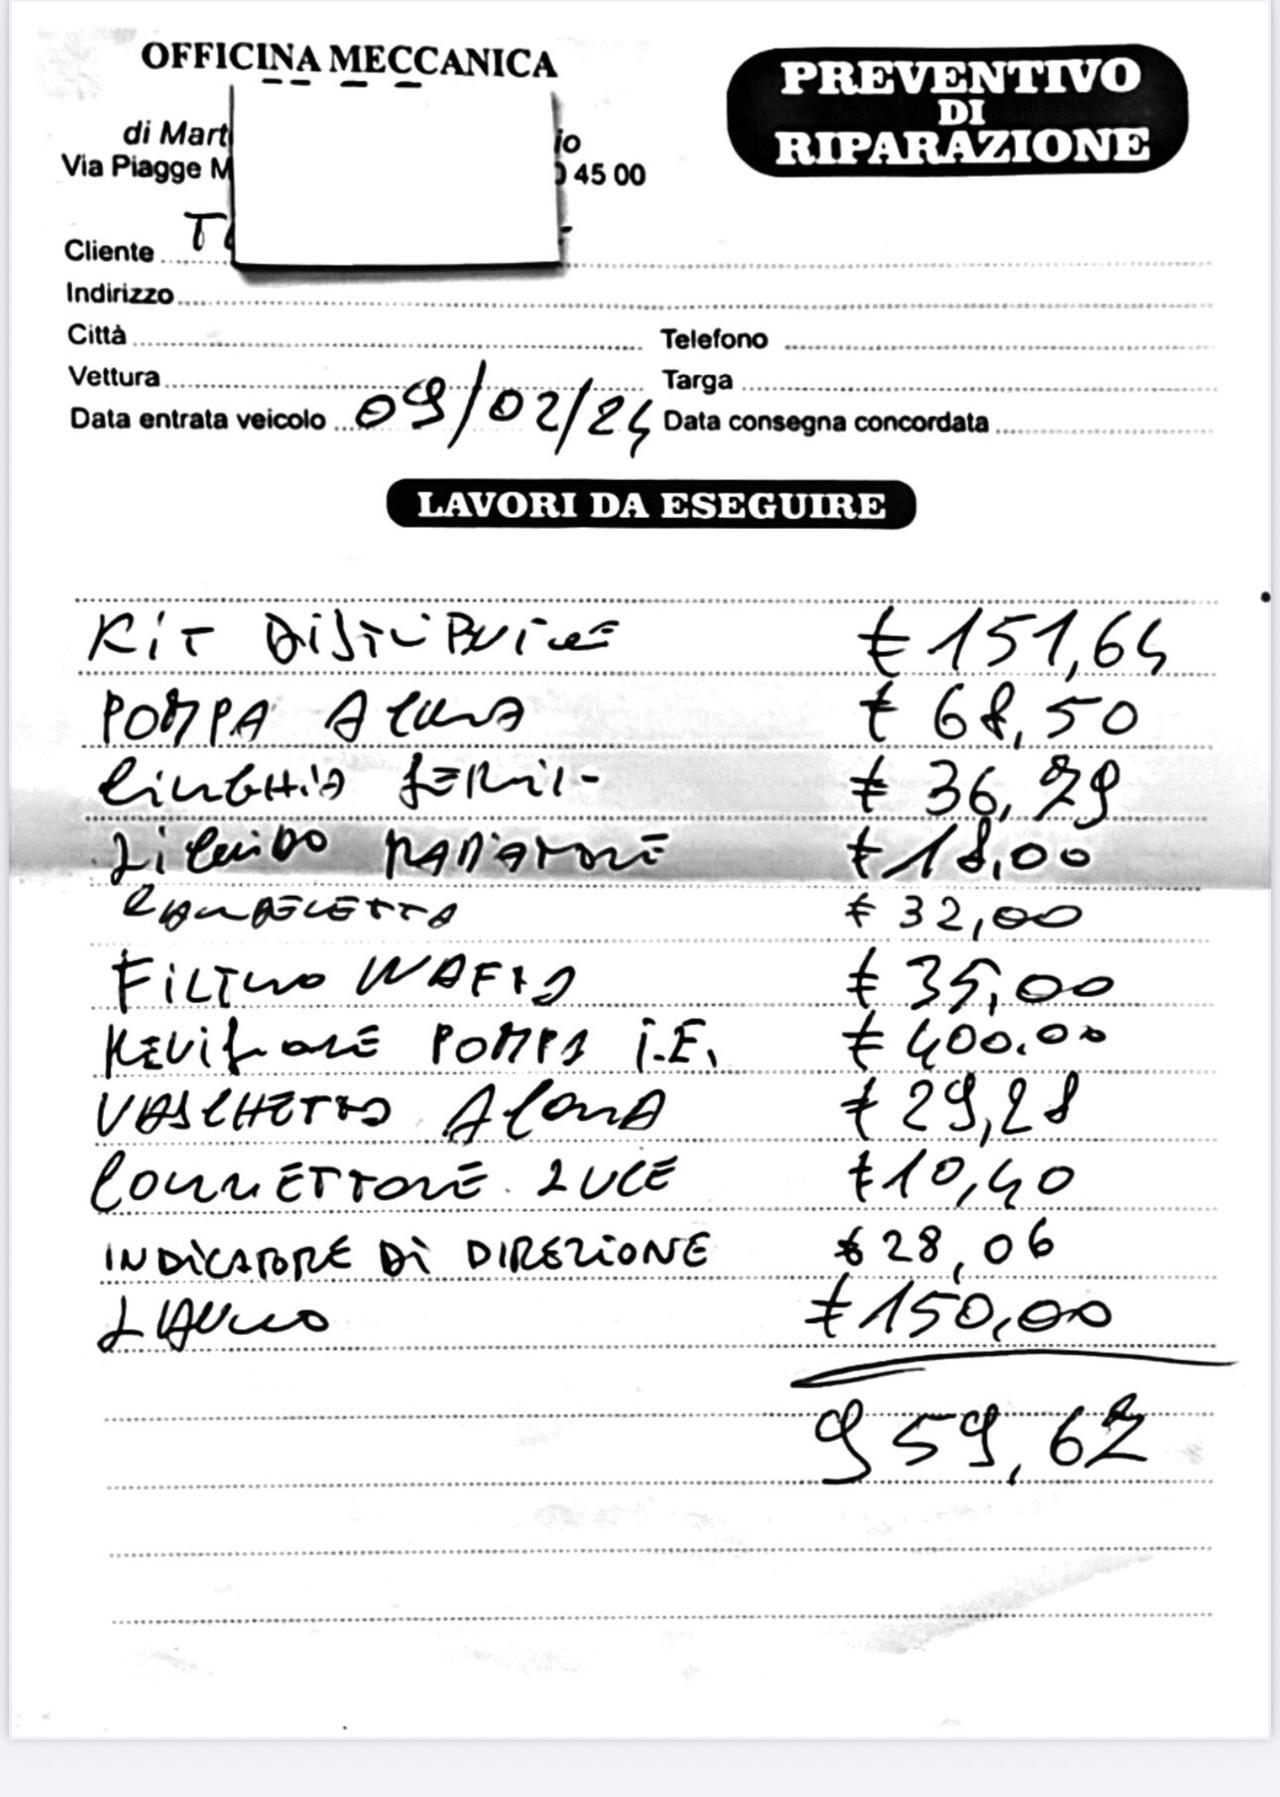 OFFICINA MECCANICA
PREVENTIVO
DI
RIPARAZIONE
di Mart io
Via Piagge M 45 00
Cliente T
Indirizzo
Città Telefono
Vettura Targa
Data entrata veicolo 09/02/24 Data consegna concordata
LAVORI DA ESEGUIRE
KIT DISTRIBUZIONE € 151,64
POMPA ACQUA € 68,50
CINGHIA SERVIZI € 36,79
LIQUIDO RADIATORE € 18,00
€ 32,00
FILTRO NAFTA € 35,00
REVISIONE POMPA I.E. € 400.00
VASCHETTA ACQUA € 29,28
CONNETTORE LUCE € 10,40
INDICATORE DI DIREZIONE € 28,06
LAVORO € 150,00
959,67